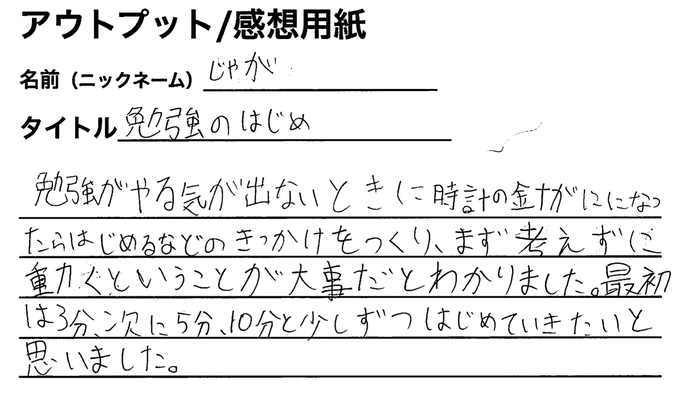 アウトプット/感想用紙
名前（ニックネーム） じゃが
タイトル 勉強のはじめ
勉強がやる気が出ないときに時計の針が12になっ
たらはじめるなどのきっかけをつくり、まず考えずに
動くということが大事だとわかりました。最初
は3分、次に5分、10分と少しずつはじめていきたいと
思いました。